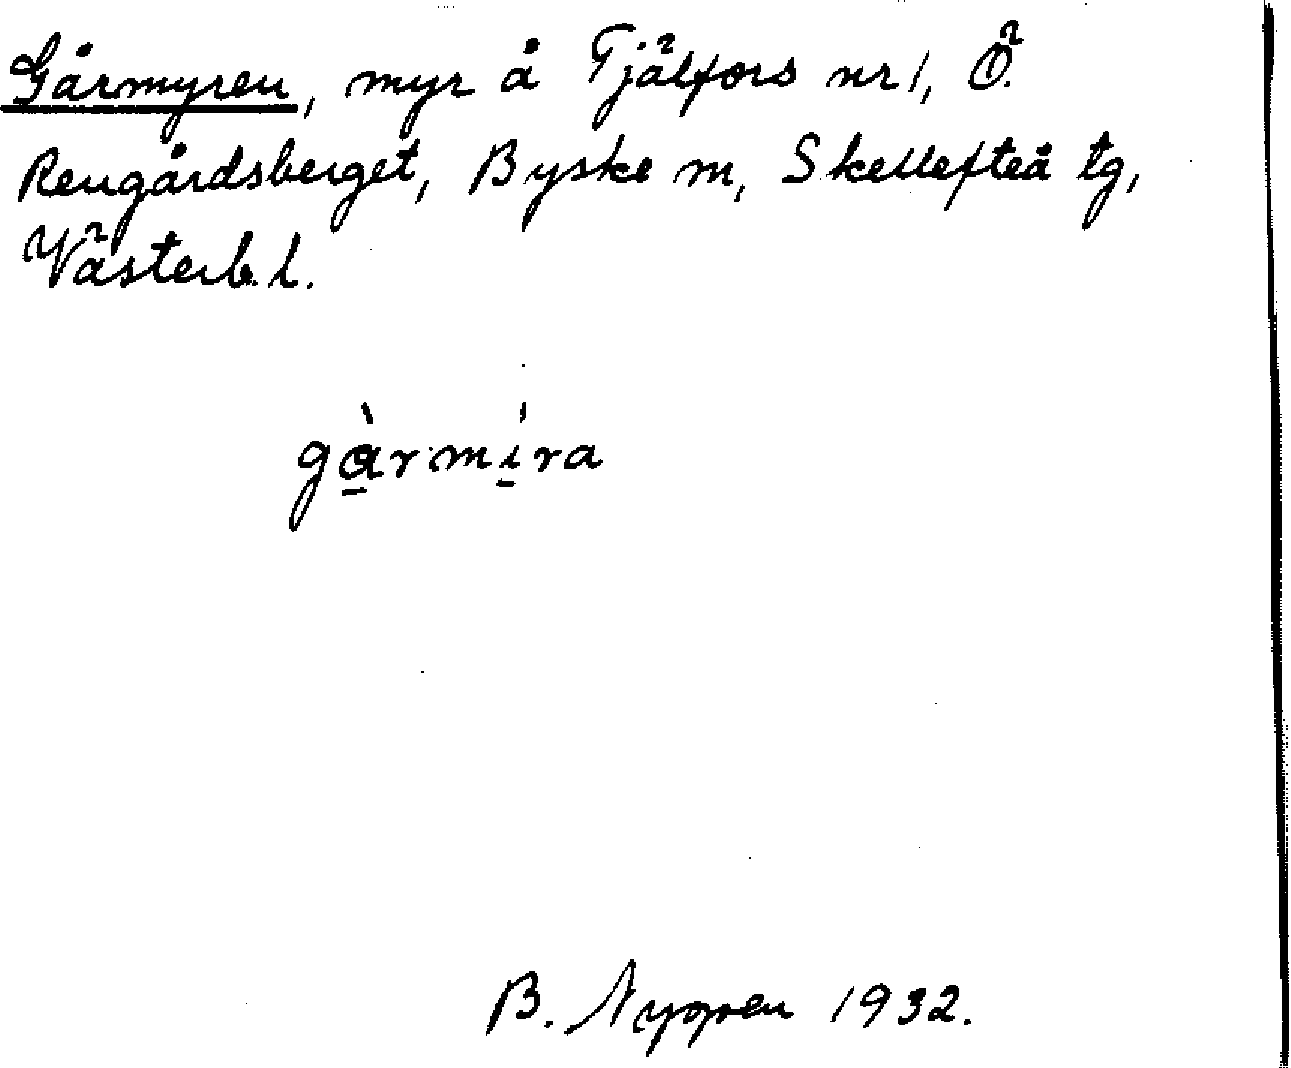 Gårmyren, myr å Tjälfors nr 1, Ö.
Rengårdsberget, Byske sn, Skellefteå tg,
Västerb. l.
gàrmíra
B. Nygren 1932.